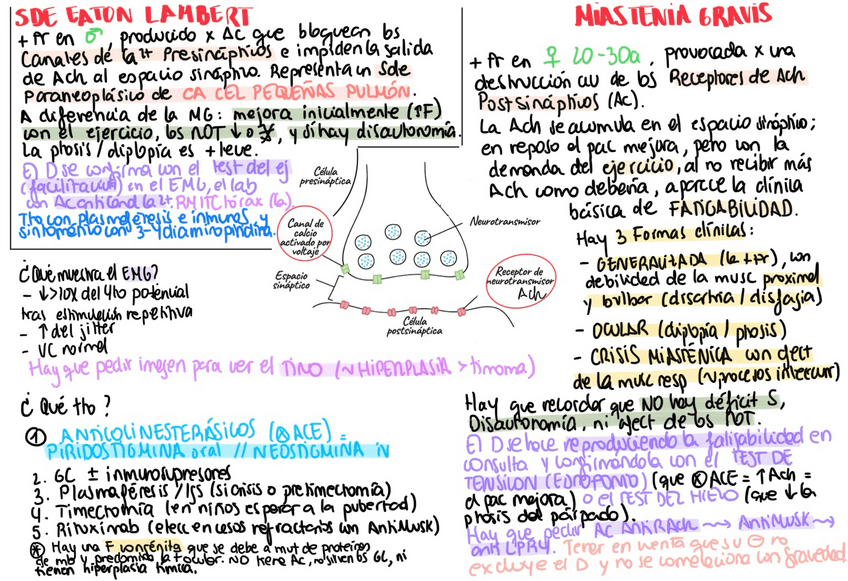 SDE EATON LAMBERT
+ Fr en ♂, producido x Ac que bloquean los
Canales de Ca²⁺ Presinápticos e impiden la salida
de Ach al espacio sináptico. Representa un Sde
Paraneoplásico de CA CEL PEQUEÑAS PULMÓN.
A diferencia de la MG: mejora inicialmente (↑F)
con el ejercicio, los NOT ↓ o, y sí hay disautonomía.
La ptosis / diplopía es + leve.
El D se confirma con el test del ej
(facilitación) en el EMG, el lab
con Ac anticanal Ca²⁺, RM/TC tórax (Ca).
Tto con plasmaféresis e inmunos, y
sintomático con 3-4 diaminopiridina.
Célula
presináptica
Canal de
calcio
activado por
voltaje
Espacio
sináptico
Neurotransmisor
Receptor de
neurotransmisor
Ach
Célula
postsináptica
¿Qué muestra el EMG?
- ↓>10% del 4to potencial
tras estimulación repetitiva
- ↑ del jitter
- VC normal
Hay que pedir imagen para ver el TIMO (~ HIPERPLASIA > timoma)
¿Qué tto?
① ANTICOLINESTERÁSICOS (⊗ACE) =
PIRIDOSTIGMINA oral // NEOSTIGMINA iv
2. GC ± inmunosupresores
3. Plasmaféresis / IGs (si crisis o pretimectomía)
4. Timectomía (en niños esperar a la pubertad)
5. Rituximab (elecc en casos refractarios con AntiMusk)
* Hay una F congénita que se debe a mut de proteínas
de mb y predomina la F ocular. NO tiene Ac, no sirven los GC, ni
tienen hiperplasia tímica.
MIASTENIA GRAVIS
+ Fr en ♀ 20-30a, provocada x una
destrucción de los Receptores de Ach
Postsinápticos (Ac).
La Ach se acumula en el espacio sináptico;
en reposo el pac mejora, pero con la
demanda del ejercicio, al no recibir más
Ach como debería, aparece la clínica
básica de FATIGABILIDAD.
Hay 3 Formas clínicas:
- GENERALIZADA (la + fr), con
debilidad de la musc proximal
y bulbar (disartria / disfagia)
- OCULAR (diplopía / ptosis)
- CRISIS MIASTÉNICA con afect
de la musc resp (~ procesos intercurr)
Hay que recordar que NO hay déficit S,
Disautonomía, ni afect de los NOT.
El D se hace reproduciendo la fatigabilidad en
consulta y confirmándola con el TEST DE
TENSILON (EDROFONIO) (que ⊗ACE = ↑Ach =
el pac mejora) o el TEST DEL HIELO (que ↓ la
ptosis del párpado).
Hay que pedir AC ANTIRACh → AntiMusk →
anti LPR4. Tener en cuenta que su ⊖ no
excluye el D y no se correlaciona con gravedad